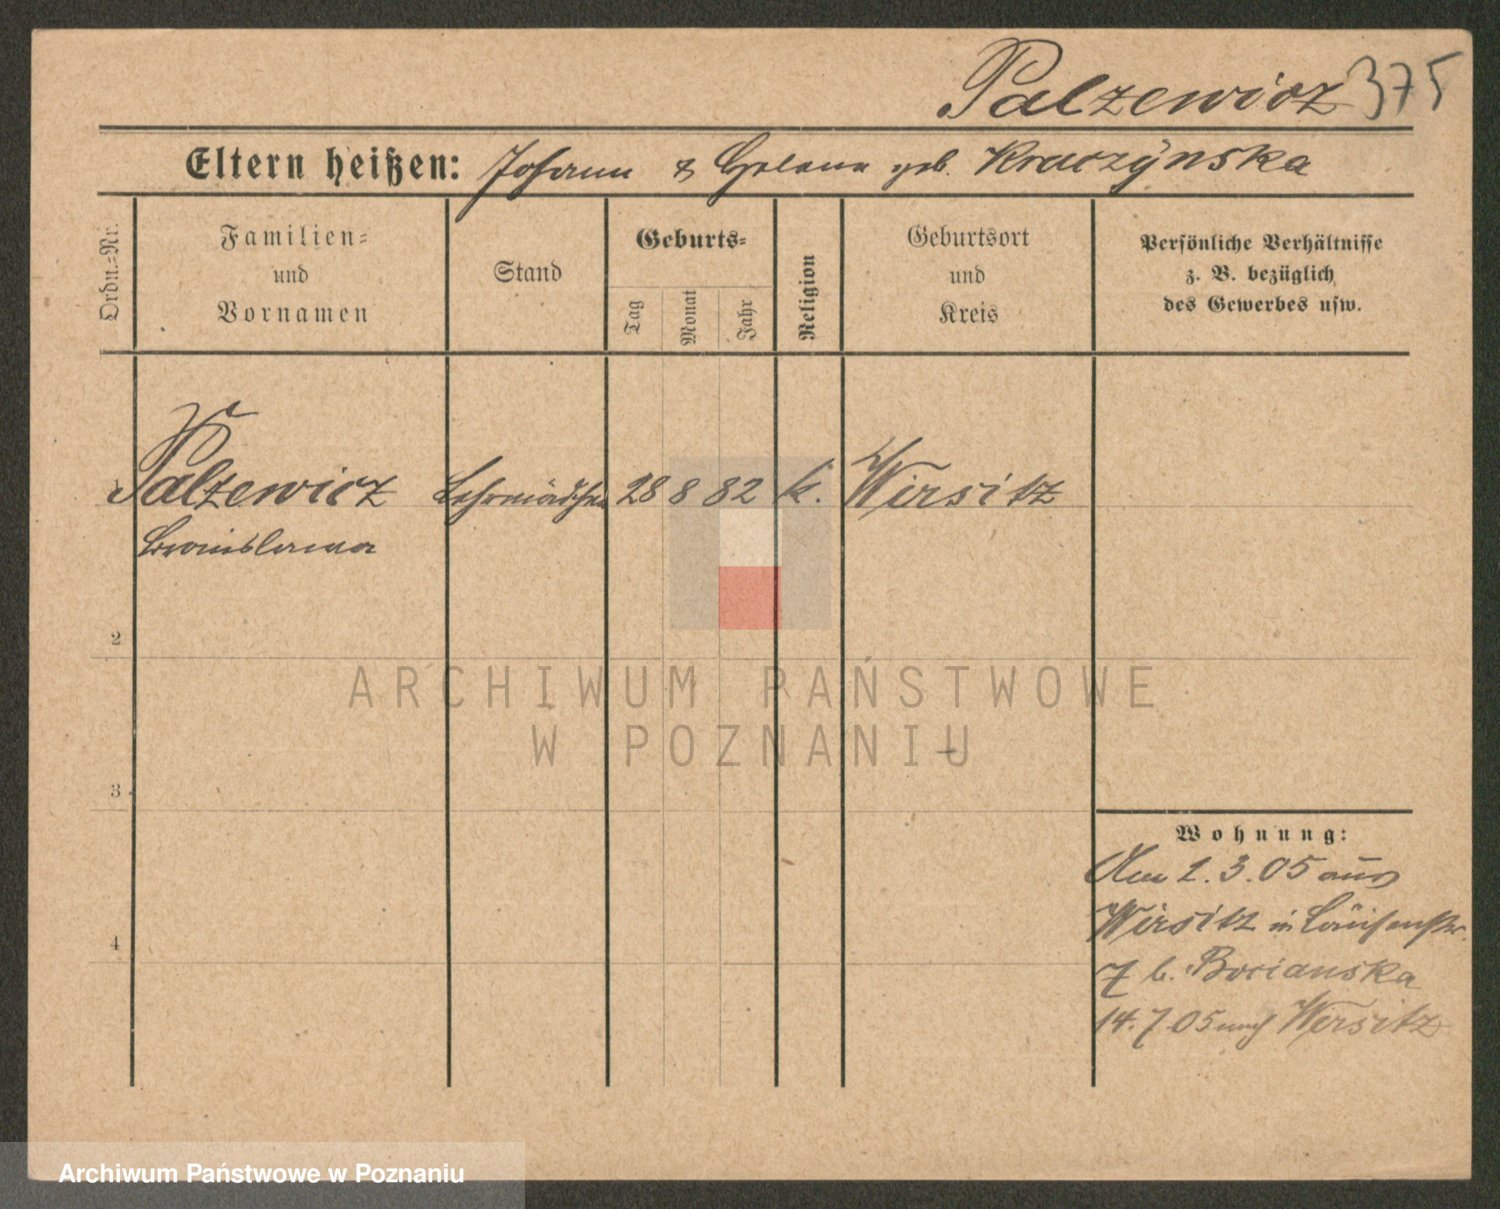 Palzewicz 375
Eltern heißen: Johann & Helena geb. Kraczynska
Ordn.=Nr.
Familien=
und
Vornamen
Stand
Geburts=
Tag
Monat
Jahr
Religion
Geburtsort
und
Kreis
Persönliche Verhältnisse
z. B. bezüglich
des Gewerbes usw.
Palzewicz Lehrmädchen 28 8 82 k. Wirsitz
Bronislawa
2
ARCHIWUM PAŃSTWOWE
W POZNANIU
3
Wohnung:
Am 2.3.05 aus
Wirsitz in Louisenstr.
7 b. Bocianska
14.7.05 nach Wirsitz
4
Archiwum Państwowe w Poznaniu